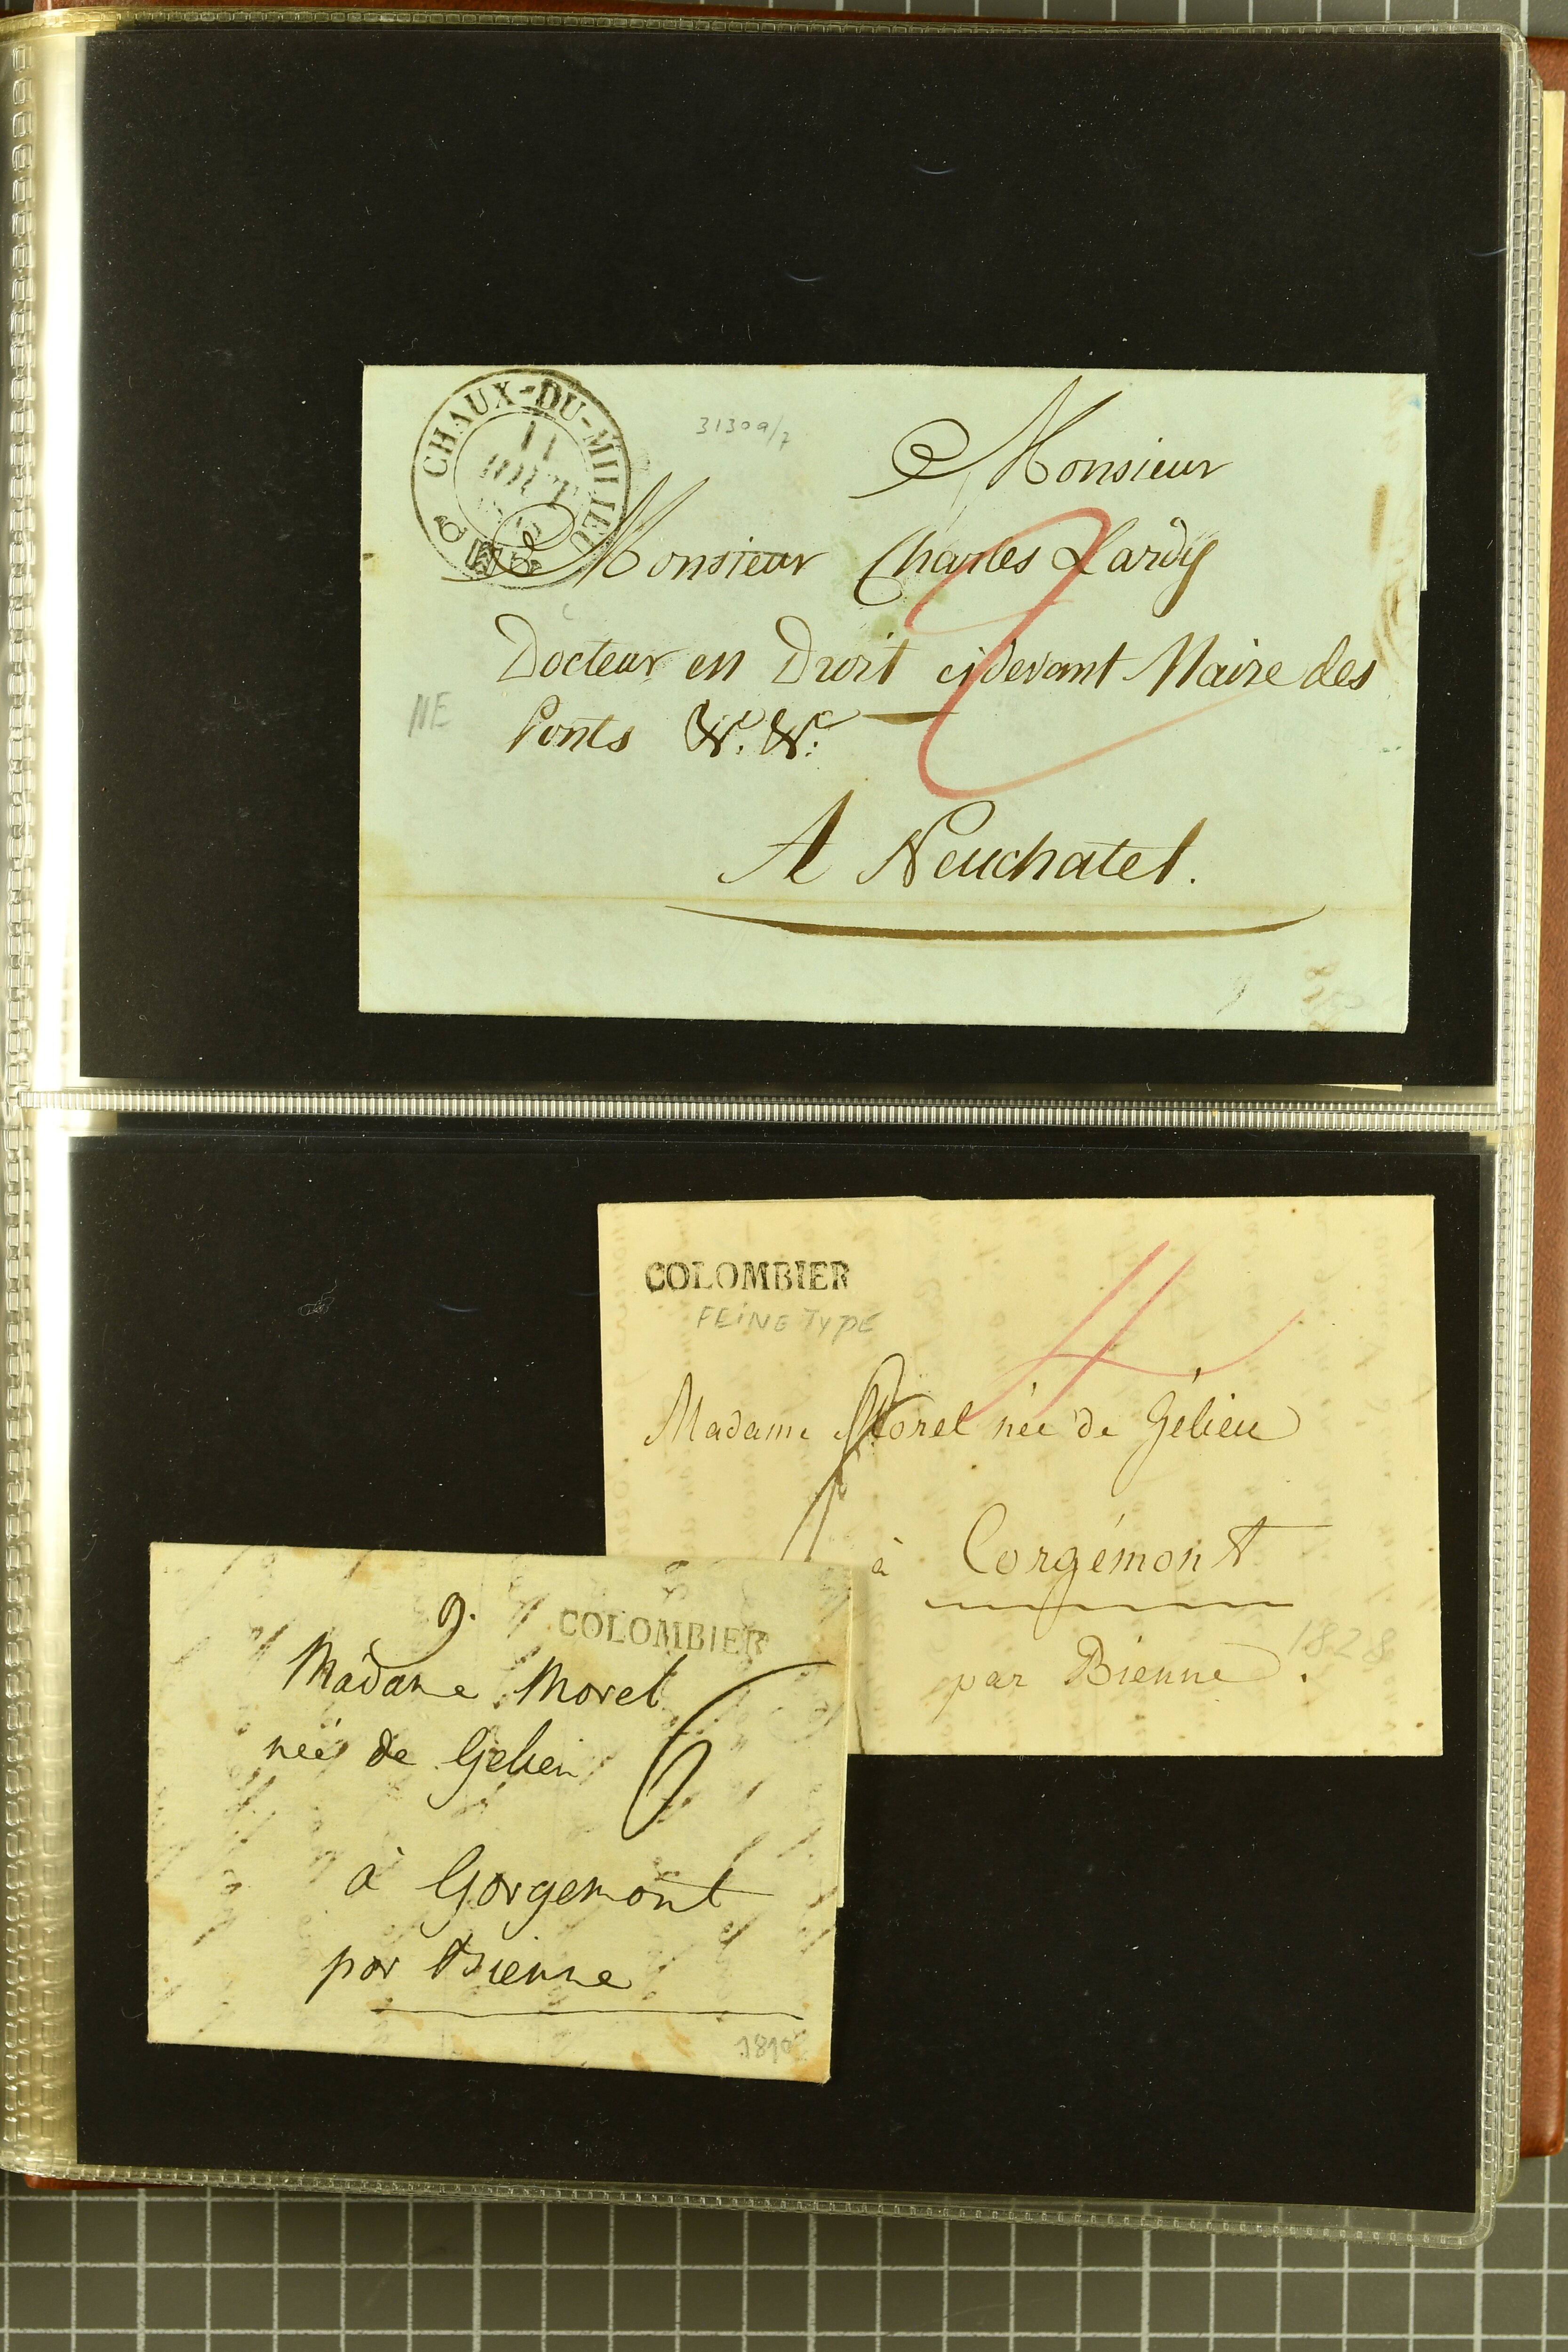 CHAUX-DU-MILIEU
11
AOUT
31309/7
Monsieur
Monsieur Charles Lardy
Docteur en Droit cidevant Maire des
Ponts &c. &c:
NE
A Neuchatel.
2
COLOMBIER
FEINE TYPE
4
Madame Morel née de Gélieu
à Corgémont
par Bienne.
1828
9.
COLOMBIER
Madame Morel
née de Gelieu
6
à Gorgemont
par Bienne